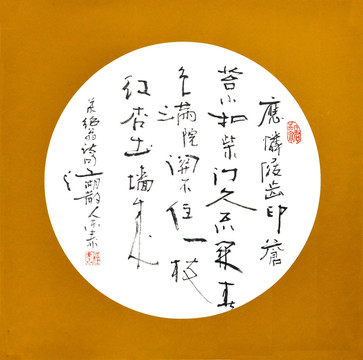 應憐屐齒印蒼
苔小扣柴門久不開春
色滿院關不住一枝
紅杏出墻來
翁詩句
湖散人